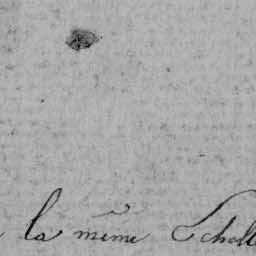 la même Echelle